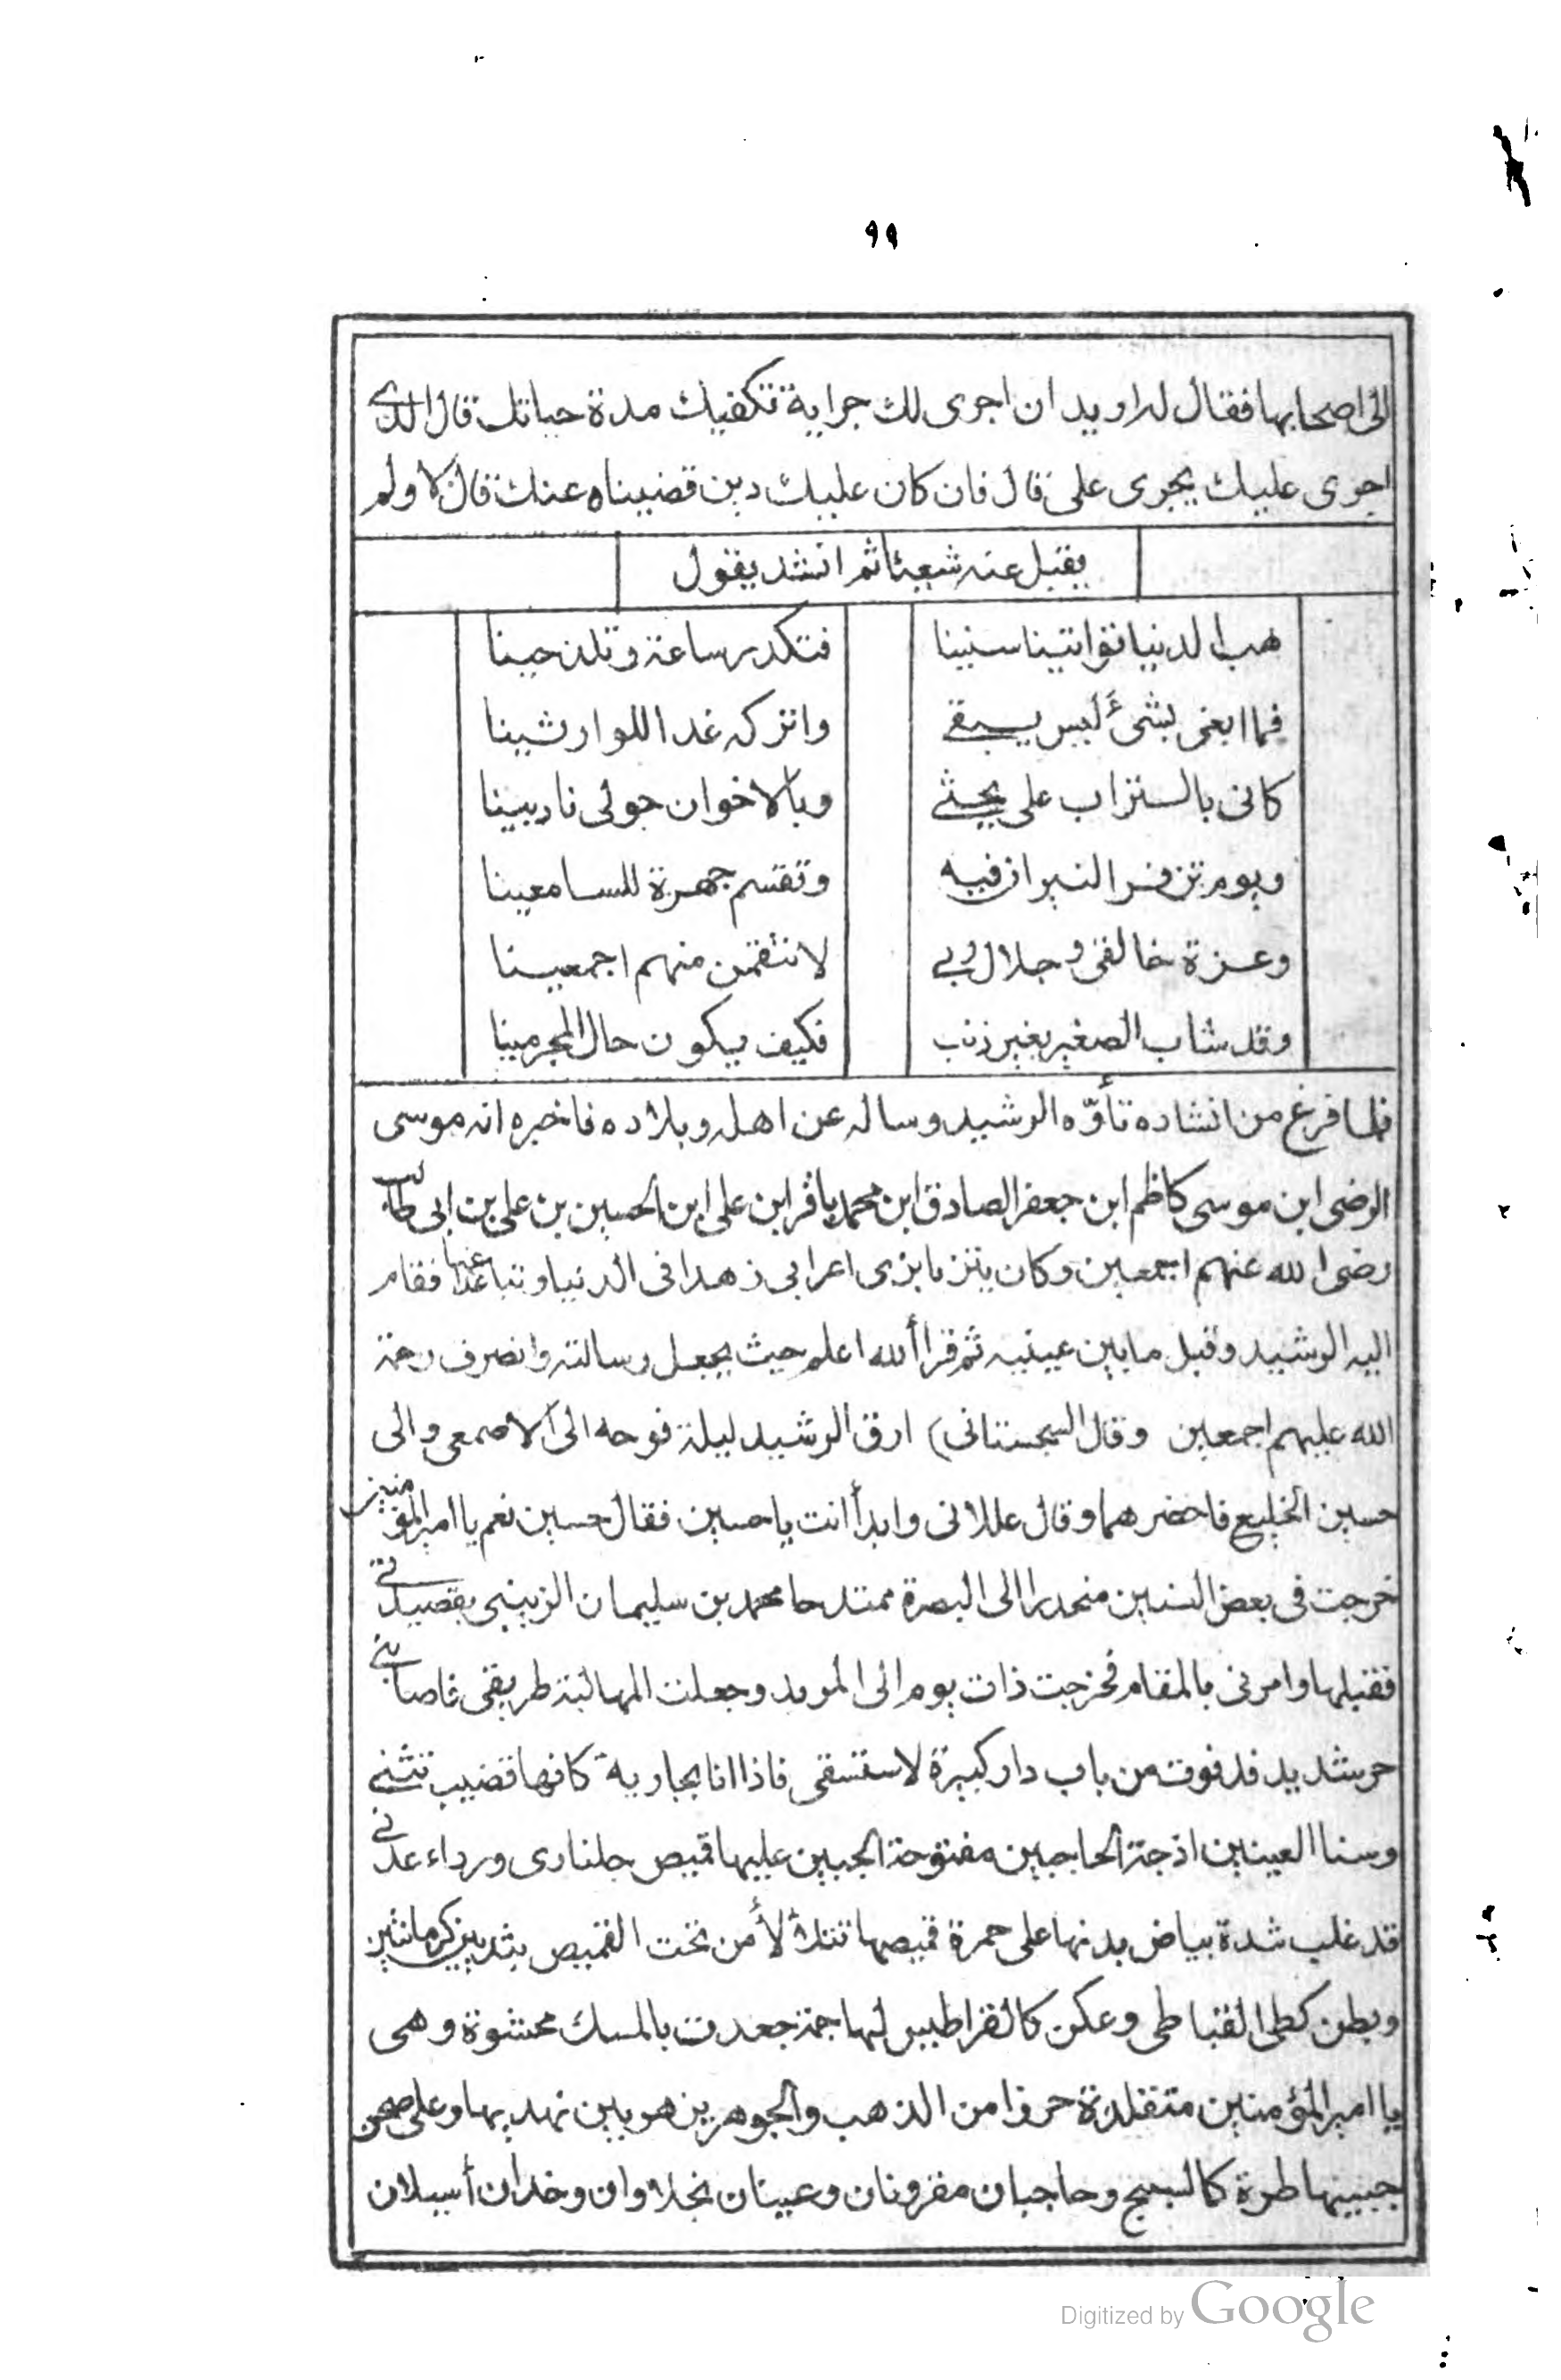 ٩٩
الى اصحابها فقال له اريد ان اجرى لك جراية تكفيك مدة حياتك قال الذى
اجرى عليك يجرى على قال فان كان عليك دين قضيناه عنك قال لا ولم
يقبل عنه شيئا ثم انشد يقول
هب الدنيا تواتينا سنينا فتكدر ساعة وتلذ حينا
فما ابغى بشئ ليس يبقى واتركه غدا للوارثينا
كانى بالتراب على يحثى وبالاخوان حولى نادبينا
ويوم تزفر النيران فيه وتقسم جهرة للسامعينا
وعزة خالقى وجلال ربى لانتقمن منهم اجمعينا
وقد شاب الصغير بغير ذنب فكيف يكون حال المجرمينا
فلما فرغ من انشاده تأوّه الرشيد وساله عن اهله وبلاده فاخبره انه موسى
الرضى ابن موسى كاظم ابن جعفر الصادق ابن محمد باقر ابن على ابن الحسين بن على بن ابى طالب
رضى الله عنهم اجمعين وكان يتزيا بزى اعرابى زهدا فى الدنيا وتباعدا عنها فقام
اليه الرشيد وقبل ما بين عينيه ثم قرأ الله اعلم حيث يجعل رسالته وانصرف رحمة
الله عليهم اجمعين وقال السجستانى) ارق الرشيد ليلة فوجه الى الاصمعى والى
حسين الخليع فاحضرهما وقال عللانى وابدأ انت يا حسين فقال حسين نعم يا امير المؤمنين
خرجت فى بعض السنين منحدرا الى البصرة ممتدحا محمد بن سليمان الزينبى بقصيدتى
فقبلها وامرنى بالمقام فخرجت ذات يوم الى المربد وجعلت المهالبة طريقى فاصابنى
حر شديد فدنوت من باب دار كبيرة لاستسقى فاذا انا بجارية كانها قضيب تتثنى
وسنا العينين ازجة الحاجبين مفتوحة الجبين عليها قميص جلنارى ورداء عدنى
قد غلب شدة بياض بدنها على حمرة قميصها تتلألأ من تحت القميص بثديين كرمانتين
وبطن كطى القباطى وعكن كالقراطيس لها جمة جعدت بالمسك محشوة وهى
يا امير المؤمنين متقلدة خرزا من الذهب والجوهر يزهو بين نهديها وعلى صحن
جبينها طرة كالسبج وحاجبان مقرونان وعينان نجلاوان وخدان أسيلان
Digitized by Google